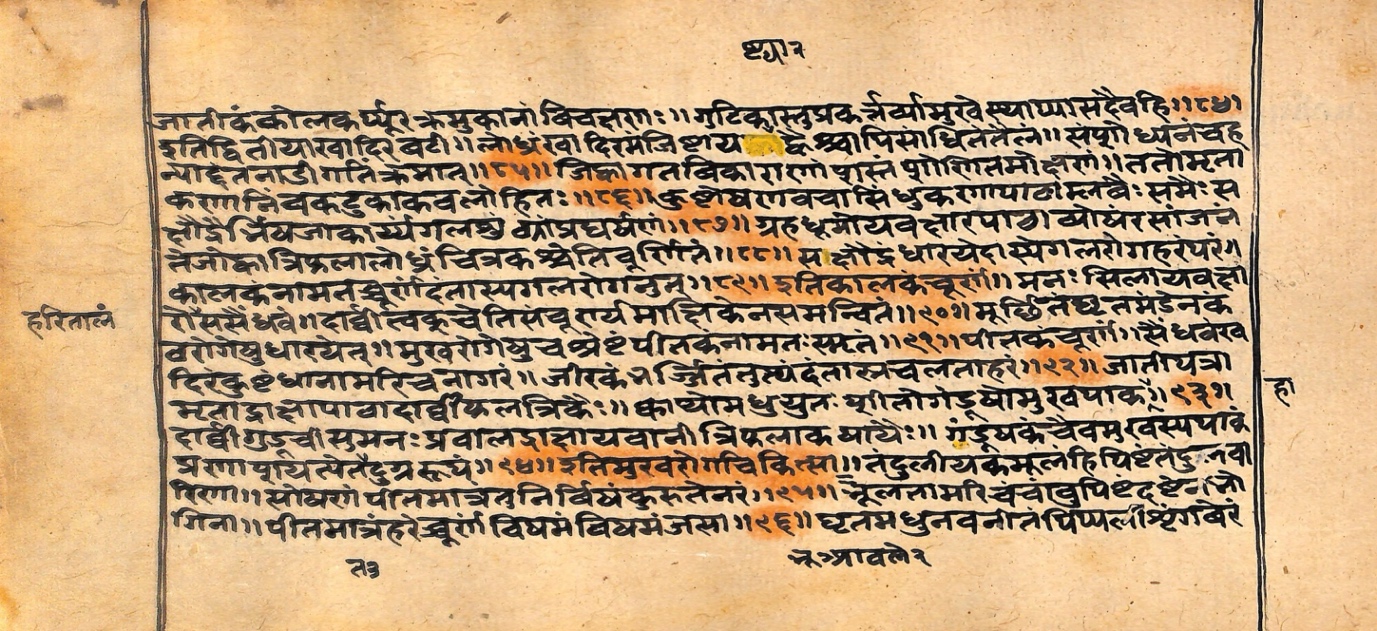 ष्ट्या २
जातीकंकोलकर्प्पूरक्रमुकानां विचक्षणः॥ गुटिकास्तु प्रकर्त्तर्व्यामुखे स्थाप्या सदैवहि॥८४॥
इतिद्वितीयाखादिरवटी॥ लोध्रंखादिरमंजिष्टाय द्वैश्चापिसाधितंतैलं॥ संपूशोध्यनंचह
न्याद्दंतनाडीगतिंक्रमात्॥८५॥ जिह्वागतविकाराणां प्रास्तं शोणितमोक्षणं॥ ततोमृता
करणानिंवकटुकाकवलोहितः॥८६॥ कुष्टोषणवचासिंधुकणापाठाप्लवैः समैः स
क्षौद्रैर्भिषजाकार्य्यंगलशुंड्यांप्रघर्षणं॥८७॥ ग्रहधूमोयवक्षारपाठा व्योषरसांजनं
तेजोह्वात्रिफलालोध्रं चित्रकश्चेतिचूर्णितं॥८८॥ सक्षौद्रं धारयेदास्येगलरोगहरंपरं॥
कालकंनामतच्चूर्णंदंतास्यगलरोगनुत्॥८९॥ इतिकालकंचूर्णं॥ मनः सिलायवक्षा
रोससैंधवं॥ दार्व्वीत्वक्चेतिसंचूर्ण्यमाक्षिकेनसमन्वितं॥९०॥ मूर्छितंघृतमंडेनक
हरितालं
वरोगेषुधारयेत्॥ मुखरोगेषुचश्रेष्टंपीतकंनामतःस्मृतं॥९१॥ पीतकंचूर्णं॥ सैंधवंख
दिरंकुष्टधानामरिचनागरं॥ जीरकं भर्ज्जितंतुत्थंदंतास्रचलताहरं॥९२॥ जातीपत्रा
हा
मृताद्राक्षापावादार्व्वीफलत्रिकैः॥ क्वाथोमधुयुतः शीतोगंडूषोमुखपाके॥९३॥
दार्व्वीगुडूचीसुमनःप्रवालद्राक्षायवानीत्रिफलाकषायैः॥ गंडूषकंचैवमुखस्यपाकं
प्रणाशयत्येतदुग्ररूपं॥९४॥ इतिमुखरोगचिकित्सा॥ तंदुलीयकमूलंहिपिष्टंतंदुलवा
रिणा॥ सोषणं पीतमात्रंतुनिर्विषंकुरुतेनरं॥९५॥ मूलनामरिचंचांबुपिष्टदष्टेन
गिना॥ पीतमात्रंहरेच्चूर्णं विषमं विषमंजसा॥९६॥ घृतमधुनवनीतं पिप्पलीशृंगवेरं